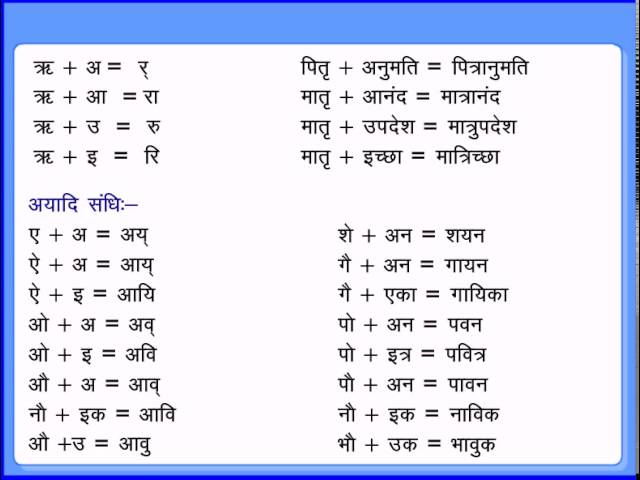 ऋ + अ = र् पितृ + अनुमति = पित्रानुमति
ऋ + आ = रा मातृ + आनंद = मात्रानंद
ऋ + उ = रु मातृ + उपदेश = मात्रुपदेश
ऋ + इ = रि मातृ + इच्छा = मात्रिच्छा
अयादि संधिः–
ए + अ = अय् शे + अन = शयन
ऐ + अ = आय् गै + अन = गायन
ऐ + इ = आयि गै + एका = गायिका
ओ + अ = अव् पो + अन = पवन
ओ + इ = अवि पो + इत्र = पवित्र
औ + अ = आव् पौ + अन = पावन
नौ + इक = आवि नौ + इक = नाविक
औ +उ = आवु भौ + उक = भावुक